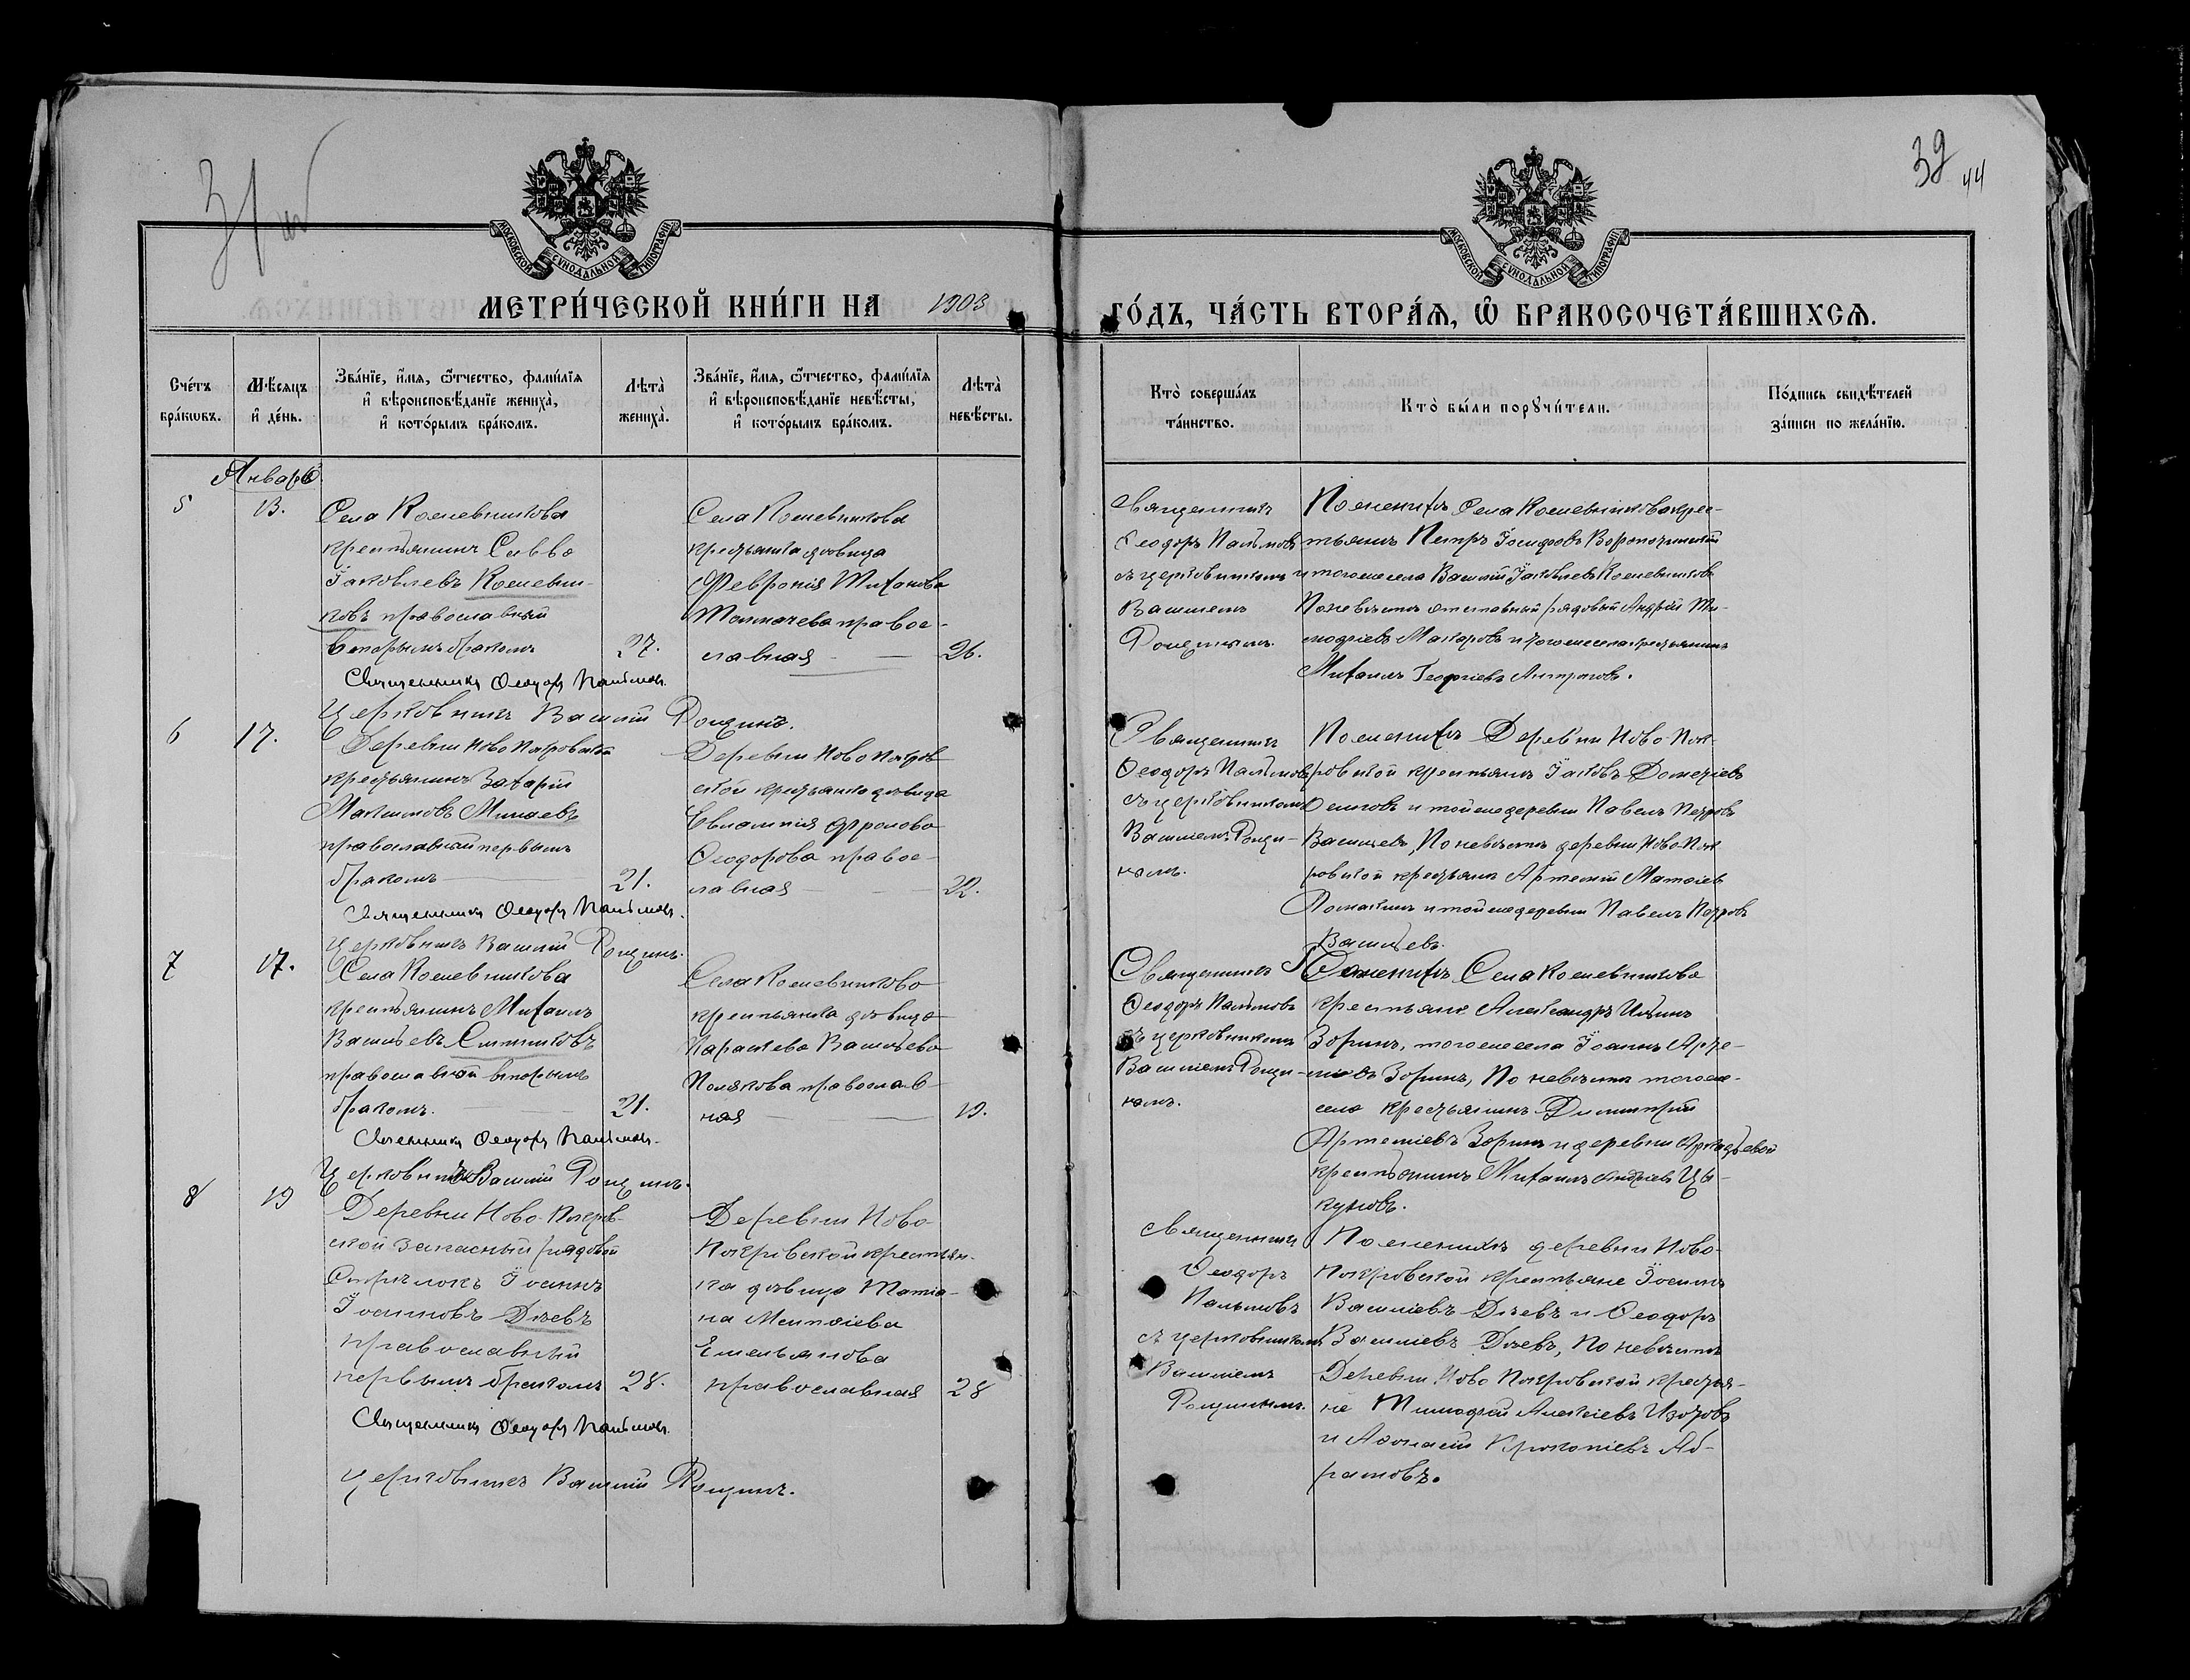 39 44
МОСКОВСКОЙ СѴНОДАЛЬНОЙ ТИПОГРАФІИ
МОСКОВСКОЙ СѴНОДАЛЬНОЙ ТИПОГРАФІИ
МЕТРИ́ЧЕСКОЙ КНИ́ГИ НА 1903
ГО́ДЪ, ЧА́СТЬ ВТОРА́Ѧ, Ѽ БРАКОСОЧЕТА́ВШИХСѦ.
Сче́тъ бра́кωвъ.
Мѣ́сяцъ и҆ де́нь.
Зва́нїе, и҆́мя, ѻ҆́тчество, фами́лїя и҆ вѣроисповѣ́данїе жениха̀, и҆ кото́рымъ бра́комъ.
Лѣта̀ жениха̀.
Зва́нїе, и҆́мя, ѻ҆́тчество, фами́лїя и҆ вѣроисповѣ́данїе невѣ́сты, и҆ кото́рымъ бра́комъ.
Лѣта̀ невѣ́сты.
Кто̀ соверша́лъ та́инство.
Кто̀ бы́ли порꙋчи́тели.
По́дпись свидѣ́телей за́писи по жела́нїю.
Января
5
13.
Села Кожевникова
крестьянинъ Савва
Іаковлевъ Кожевни-
ковъ православный
вторымъ бракомъ
27.
Села Кожевникова
крестьянка дѣвица
Феврония Михайлова
Толмачева правос-
лавная
26.
Священникъ
Ѳеодоръ Пальмовъ
съ церковникомъ
Василіемъ
Рощинымъ.
По женихѣ Села Кожевникова крес-
тьяне Петръ Іосифовъ
и того же села Василій Іаковлевъ Кожевниковъ
По невѣстѣ отставный рядовый Андрей Ти-
мофіевъ Макаровъ и того же села крестьянинъ
Михаилъ Георгіевъ
Священникъ Ѳеодоръ Пальмовъ.
Церковникъ Василій Рощинъ.
6
17.
Деревни Ново Покровской
крестьянинъ Захарій
Максимовъ Минаевъ
православный первымъ
бракомъ
21.
Деревни Ново Покров
ской крестьянка дѣвица
Евлампія Фролова
Ѳеодорова правос-
лавная
22.
Священникъ
Ѳеодоръ Пальмовъ
съ церковникомъ
Василіемъ Рощи-
нымъ.
По женихѣ Деревни Ново-Пок-
ровской крестьяне Іаковъ
и той же деревни Павелъ Петровъ
Васильевъ, По невѣстѣ деревни Ново-Пок
ровской крестьяне Артемій Матѳіев
и той же деревни Павелъ Петровъ
Васильевъ.
Священникъ Ѳеодоръ Пальмовъ.
Церковникъ Василій Рощинъ.
7
17.
Села Кожевникова
крестьянинъ Михаилъ
Васильевъ Ситниковъ
православный вторымъ
бракомъ.
21.
Села Кожевникова
крестьянка дѣвица
Параскева Васильева
Полякова православ
ная
19.
Священникъ
Ѳеодоръ Пальмовъ
съ церковникомъ
Василіемъ Рощи-
нымъ.
По женихѣ Села Кожевникова
крестьяне Александръ Ильинъ
Зоринъ, того же села Іоаннъ Арте-
міевъ Зоринъ, По невѣстѣ того же
села крестьянинъ Димитрій
Артеміевъ Зоринъ и деревни
крестьянинъ Михаилъ Андріевъ Цы-
куновъ.
Священникъ Ѳеодоръ Пальмовъ.
Церковникъ Василій Рощинъ.
8
19
Деревни Ново-Покров-
ской запасный рядовой
Стрѣлокъ Іоаннъ
Іоанновъ Дѣевъ
православный
первымъ бракомъ
28.
Деревни Ново-
Покровской крестьян-
ка дѣвица Татіа-
на
Емельянова
православная
28
Священникъ
Ѳеодоръ
Пальмовъ
съ церковникомъ
Василіемъ
Рощинымъ.
По женихѣ деревни Ново-
Покровской крестьяне Іоаннъ
Василіевъ Дѣевъ и Ѳеодоръ
Василіевъ Дѣевъ, По невѣстѣ
Деревни Ново Покровской крестья-
не Тимофей Алексіевъ Изотовъ
и Аѳанасій Прокопіевъ Аб-
рамовъ.
Священникъ Ѳеодоръ Пальмовъ.
Церковникъ Василій Рощинъ.